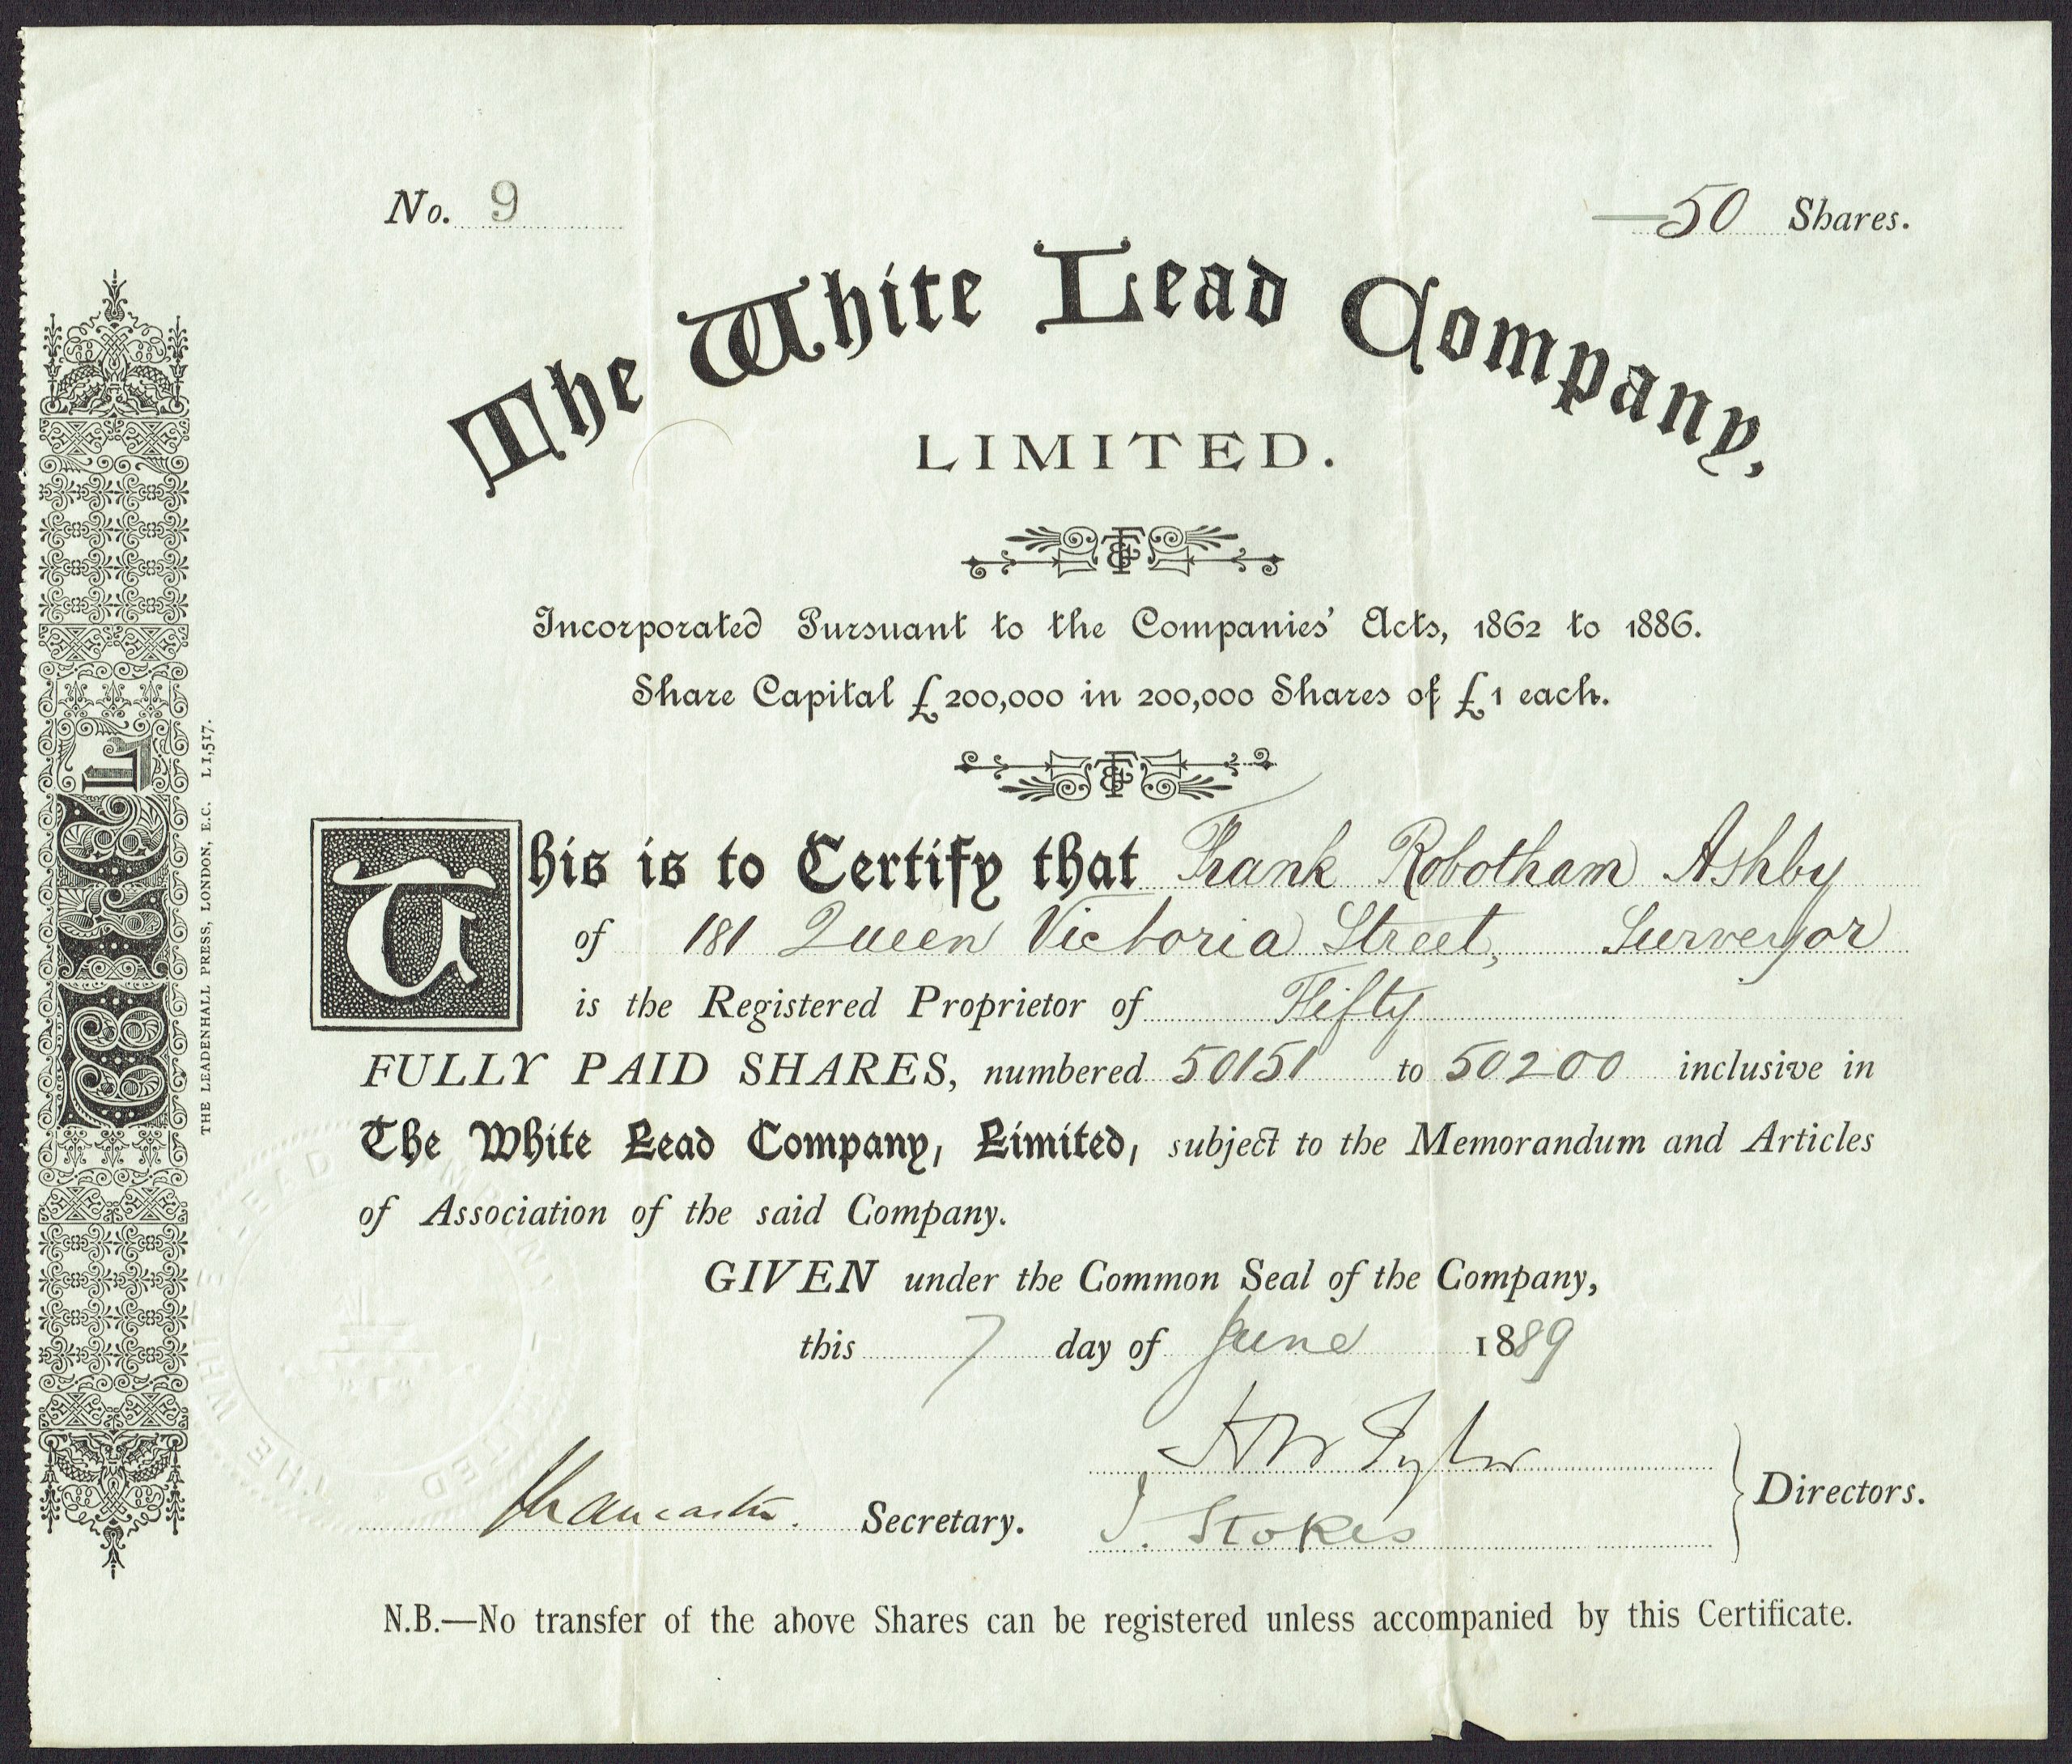 No. 9
50 Shares.
The White Lead Company,
LIMITED.
T&F
Incorporated Pursuant to the Companies' Acts, 1862 to 1886.
Share Capital £200,000 in 200,000 Shares of £1 each.
T&F
This is to Certify that Frank Robotham Ashby
of 181 Queen Victoria Street, Surveyor
is the Registered Proprietor of Fifty
FULLY PAID SHARES, numbered 50151 to 50200 inclusive in
The White Lead Company, Limited, subject to the Memorandum and Articles
of Association of the said Company.
GIVEN under the Common Seal of the Company,
this 7 day of June 1889
H W Tyler
J. Stokes
Directors.
Secretary.
N.B.—No transfer of the above Shares can be registered unless accompanied by this Certificate.
THE LEADENHALL PRESS, LONDON, E.C. L1,517.
THE WHITE LEAD COMPANY LIMITED